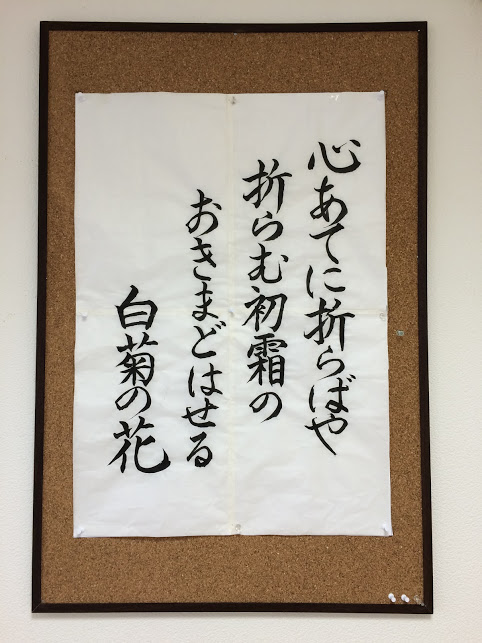 心あてに折らばや
折らむ初霜の
おきまどはせる
白菊の花